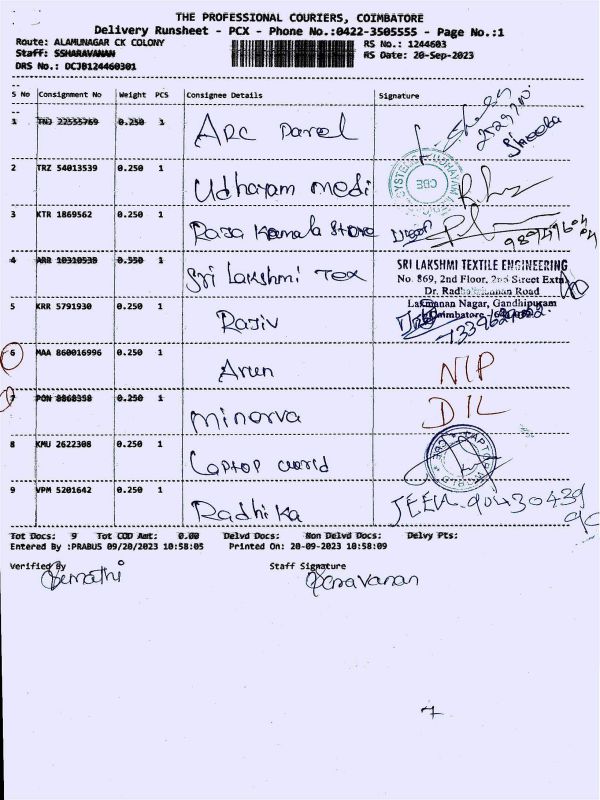 THE PROFESSIONAL COURIERS, COIMBATORE
Delivery Runsheet - PCX - Phone No.:0422-3505555 - Page No.:1
Route: ALAMUNAGAR CK COLONY
RS No.: 1244603
Staff: SSHARAVANAN
RS Date: 20-Sep-2023
DRS No.: DCJB124460301
S No Consignment No Weight PCS Consignee Details Signature
1 TNJ 22555769 0.250 1 ARC Parcel
2 TRZ 54013539 0.250 1 Udhayam medi
3 KTR 1869562 0.250 1 Raja Kamala Store
4 ARR 10310539 0.550 1 Sri Lakshmi Tex
SRI LAKSHMI TEXTILE ENGINEERING
No. 869, 2nd Floor, 2nd Street Extn
Dr. Radhakrishnan Road
Lakshmanan Nagar, Gandhipuram
Coimbatore
5 KRR 5791930 0.250 1 Rajiv
6 MAA 860016996 0.250 1 Arun NIP
7 PON 8868358 0.250 1 Minorva DIL
8 KMU 2622308 0.250 1 Laptop world
9 VPM 5201642 0.250 1 Radhika JEEN 90430439
Tot Docs: 9 Tot COD Amt: 0.00 Delvd Docs: Non Delvd Docs: Delvy Pts:
Entered By :PRABUS 09/20/2023 10:58:05 Printed On: 20-09-2023 10:58:09
Verified By Staff Signature
Saravanan
7